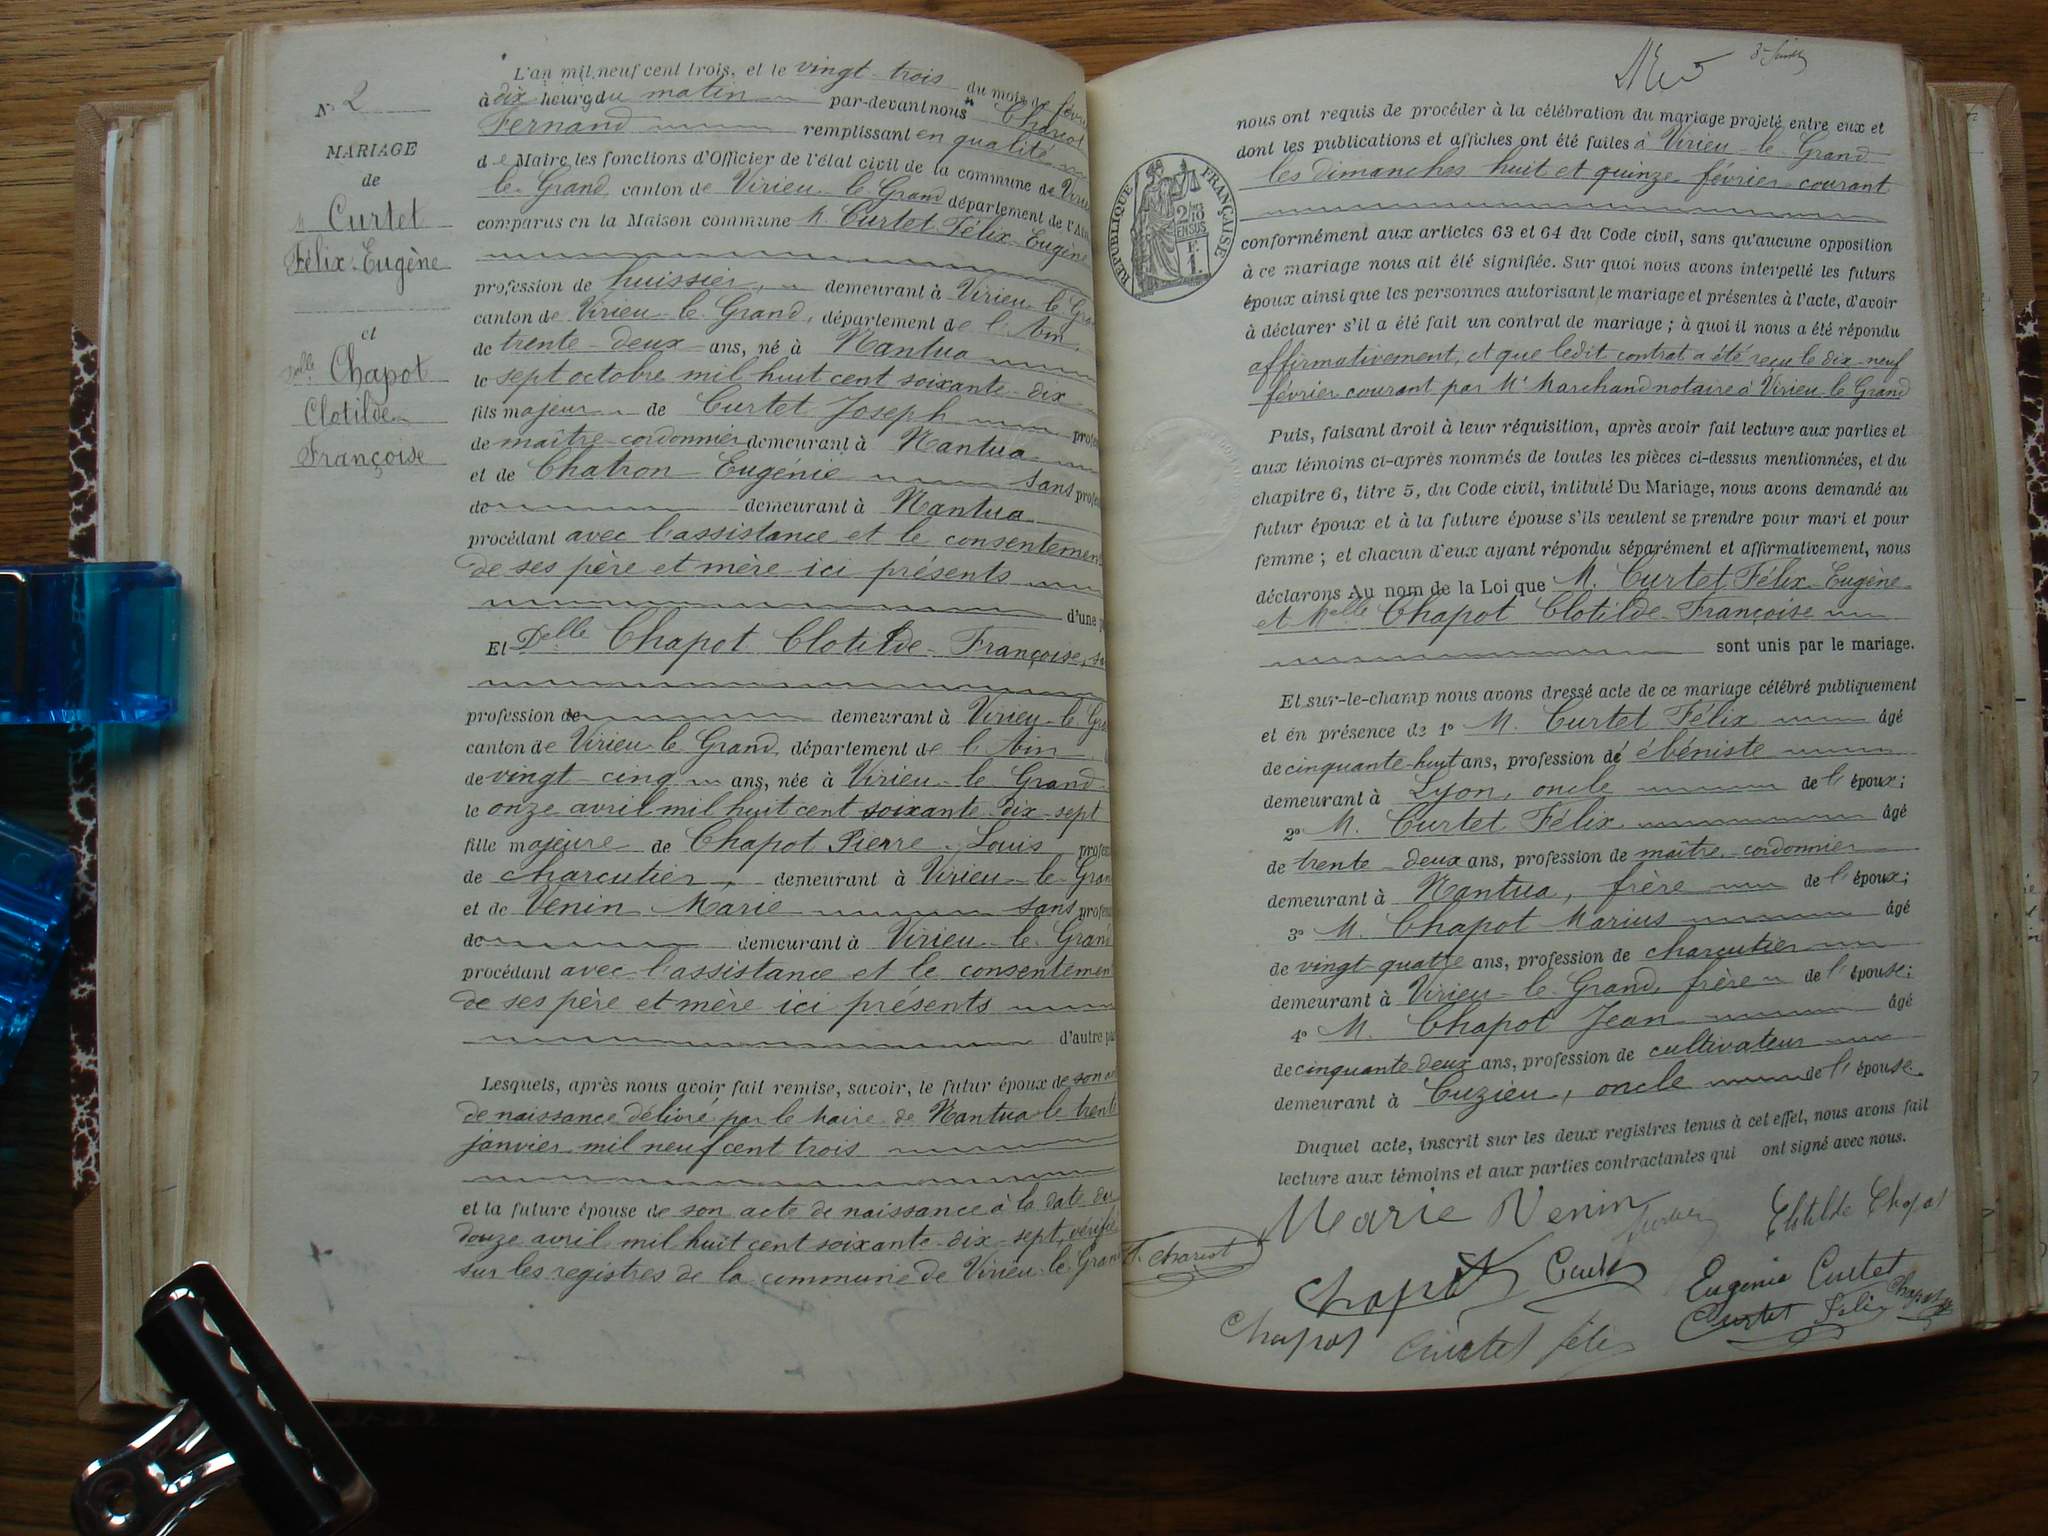 N° 2
MARIAGE
de
M. Curtet
Félix-Eugène
et
Delle Chapot
Clotilde
Françoise
L'an mil neuf cent trois, et le vingt-trois du mois de
à dix heures du matin par-devant nous Chariot
Fernand remplissant en qualité
de Maire les fonctions d'Officier de l'état civil de la commune de
le-Grand canton de Virieu-le-Grand département de
comparus en la Maison commune M. Curtet Félix-Eugène
profession de huissier, demeurant à Virieu-le
canton de Virieu-le-Grand, département de l'Ain,
de trente-deux ans, né à Nantua
le sept octobre mil huit cent soixante-dix
fils majeur de Curtet Joseph
de maître-cordonnier demeurant à Nantua
et de Chatron Eugénie sans
de demeurant à Nantua
procédant avec l'assistance et le
de ses père et mère ici présents
d'une
Et Delle Chapot Clotilde-Françoise,
profession de demeurant à Virieu-le
canton de Virieu-le-Grand, département de l'Ain
de vingt-cinq ans, née à Virieu-le-Grand
le onze avril mil huit cent soixante-dix-sept
fille majeure de Chapot Pierre-Louis
de charcutier, demeurant à Virieu-le
et de Venin Marie sans
de demeurant à Virieu-le-Grand
procédant avec l'assistance et le
de ses père et mère ici présents
d'autre
Lesquels, après nous avoir fait remise, savoir, le futur époux de son
de naissance délivré par le Maire de Nantua le trente
janvier mil neuf cent trois
et la future épouse de son acte de naissance à la date du
douze avril mil huit cent soixante-dix-sept,
sur les registres de la commune de Virieu-le-Grand
RÉPUBLIQUE FRANÇAISE
2/10 EN SUS
F. 1.
nous ont requis de procéder à la célébration du mariage projeté entre eux et
dont les publications et affiches ont été faites à Virieu-le-Grand
les dimanches huit et quinze février courant
conformément aux articles 63 et 64 du Code civil, sans qu'aucune opposition
à ce mariage nous ait été signifiée. Sur quoi nous avons interpellé les futurs
époux ainsi que les personnes autorisant le mariage et présentes à l'acte, d'avoir
à déclarer s'il a été fait un contrat de mariage ; à quoi il nous a été répondu
affirmativement, et que ledit contrat a été reçu le dix-neuf
février courant par Me Marchand notaire à Virieu-le-Grand
Puis, faisant droit à leur réquisition, après avoir fait lecture aux parties et
aux témoins ci-après nommés de toutes les pièces ci-dessus mentionnées, et du
chapitre 6, titre 5, du Code civil, intitulé Du Mariage, nous avons demandé au
futur époux et à la future épouse s'ils veulent se prendre pour mari et pour
femme ; et chacun d'eux ayant répondu séparément et affirmativement, nous
déclarons Au nom de la Loi que M. Curtet Félix-Eugène
et Melle Chapot Clotilde-Françoise
sont unis par le mariage.
Et sur-le-champ nous avons dressé acte de ce mariage célébré publiquement
et en présence de 1° M. Curtet Félix âgé
de cinquante-huit ans, profession de ébéniste
demeurant à Lyon, oncle de l'époux;
2° M. Curtet Félix âgé
de trente-deux ans, profession de maître-cordonnier
demeurant à Nantua, frère de l'époux;
3° M. Chapot Marius âgé
de vingt-quatre ans, profession de charcutier
demeurant à Virieu-le-Grand, frère de l'épouse;
4° M. Chapot Jean âgé
de cinquante-deux ans, profession de cultivateur
demeurant à Cuzieu, oncle de l'épouse.
Duquel acte, inscrit sur les deux registres tenus à cet effet, nous avons fait
lecture aux témoins et aux parties contractantes qui ont signé avec nous.
Marie Venin
Clotilde Chapot
F. Chariot
Chapot
Eugénie Curtet
Chapot Curtet Félix Curtet Félix Chapot